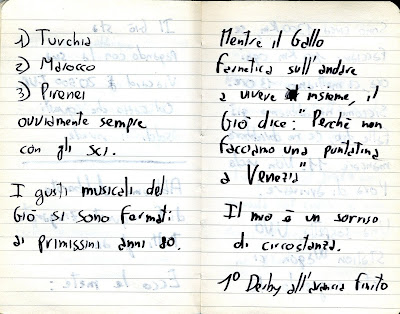 1) Turchia
2) Marocco
3) Pirenei
ovviamente sempre
con gli sci.
I gusti musicali del
Giò si sono fermati
ai primissimi anni 80.
Mentre il Gallo
farnetica sull'andare
a vivere insieme, il
Giò dice: "Perchè non
facciamo una puntatina
a Venezia"
Il mio è un sorriso
di circostanza.
1° Derby all'arancia finito